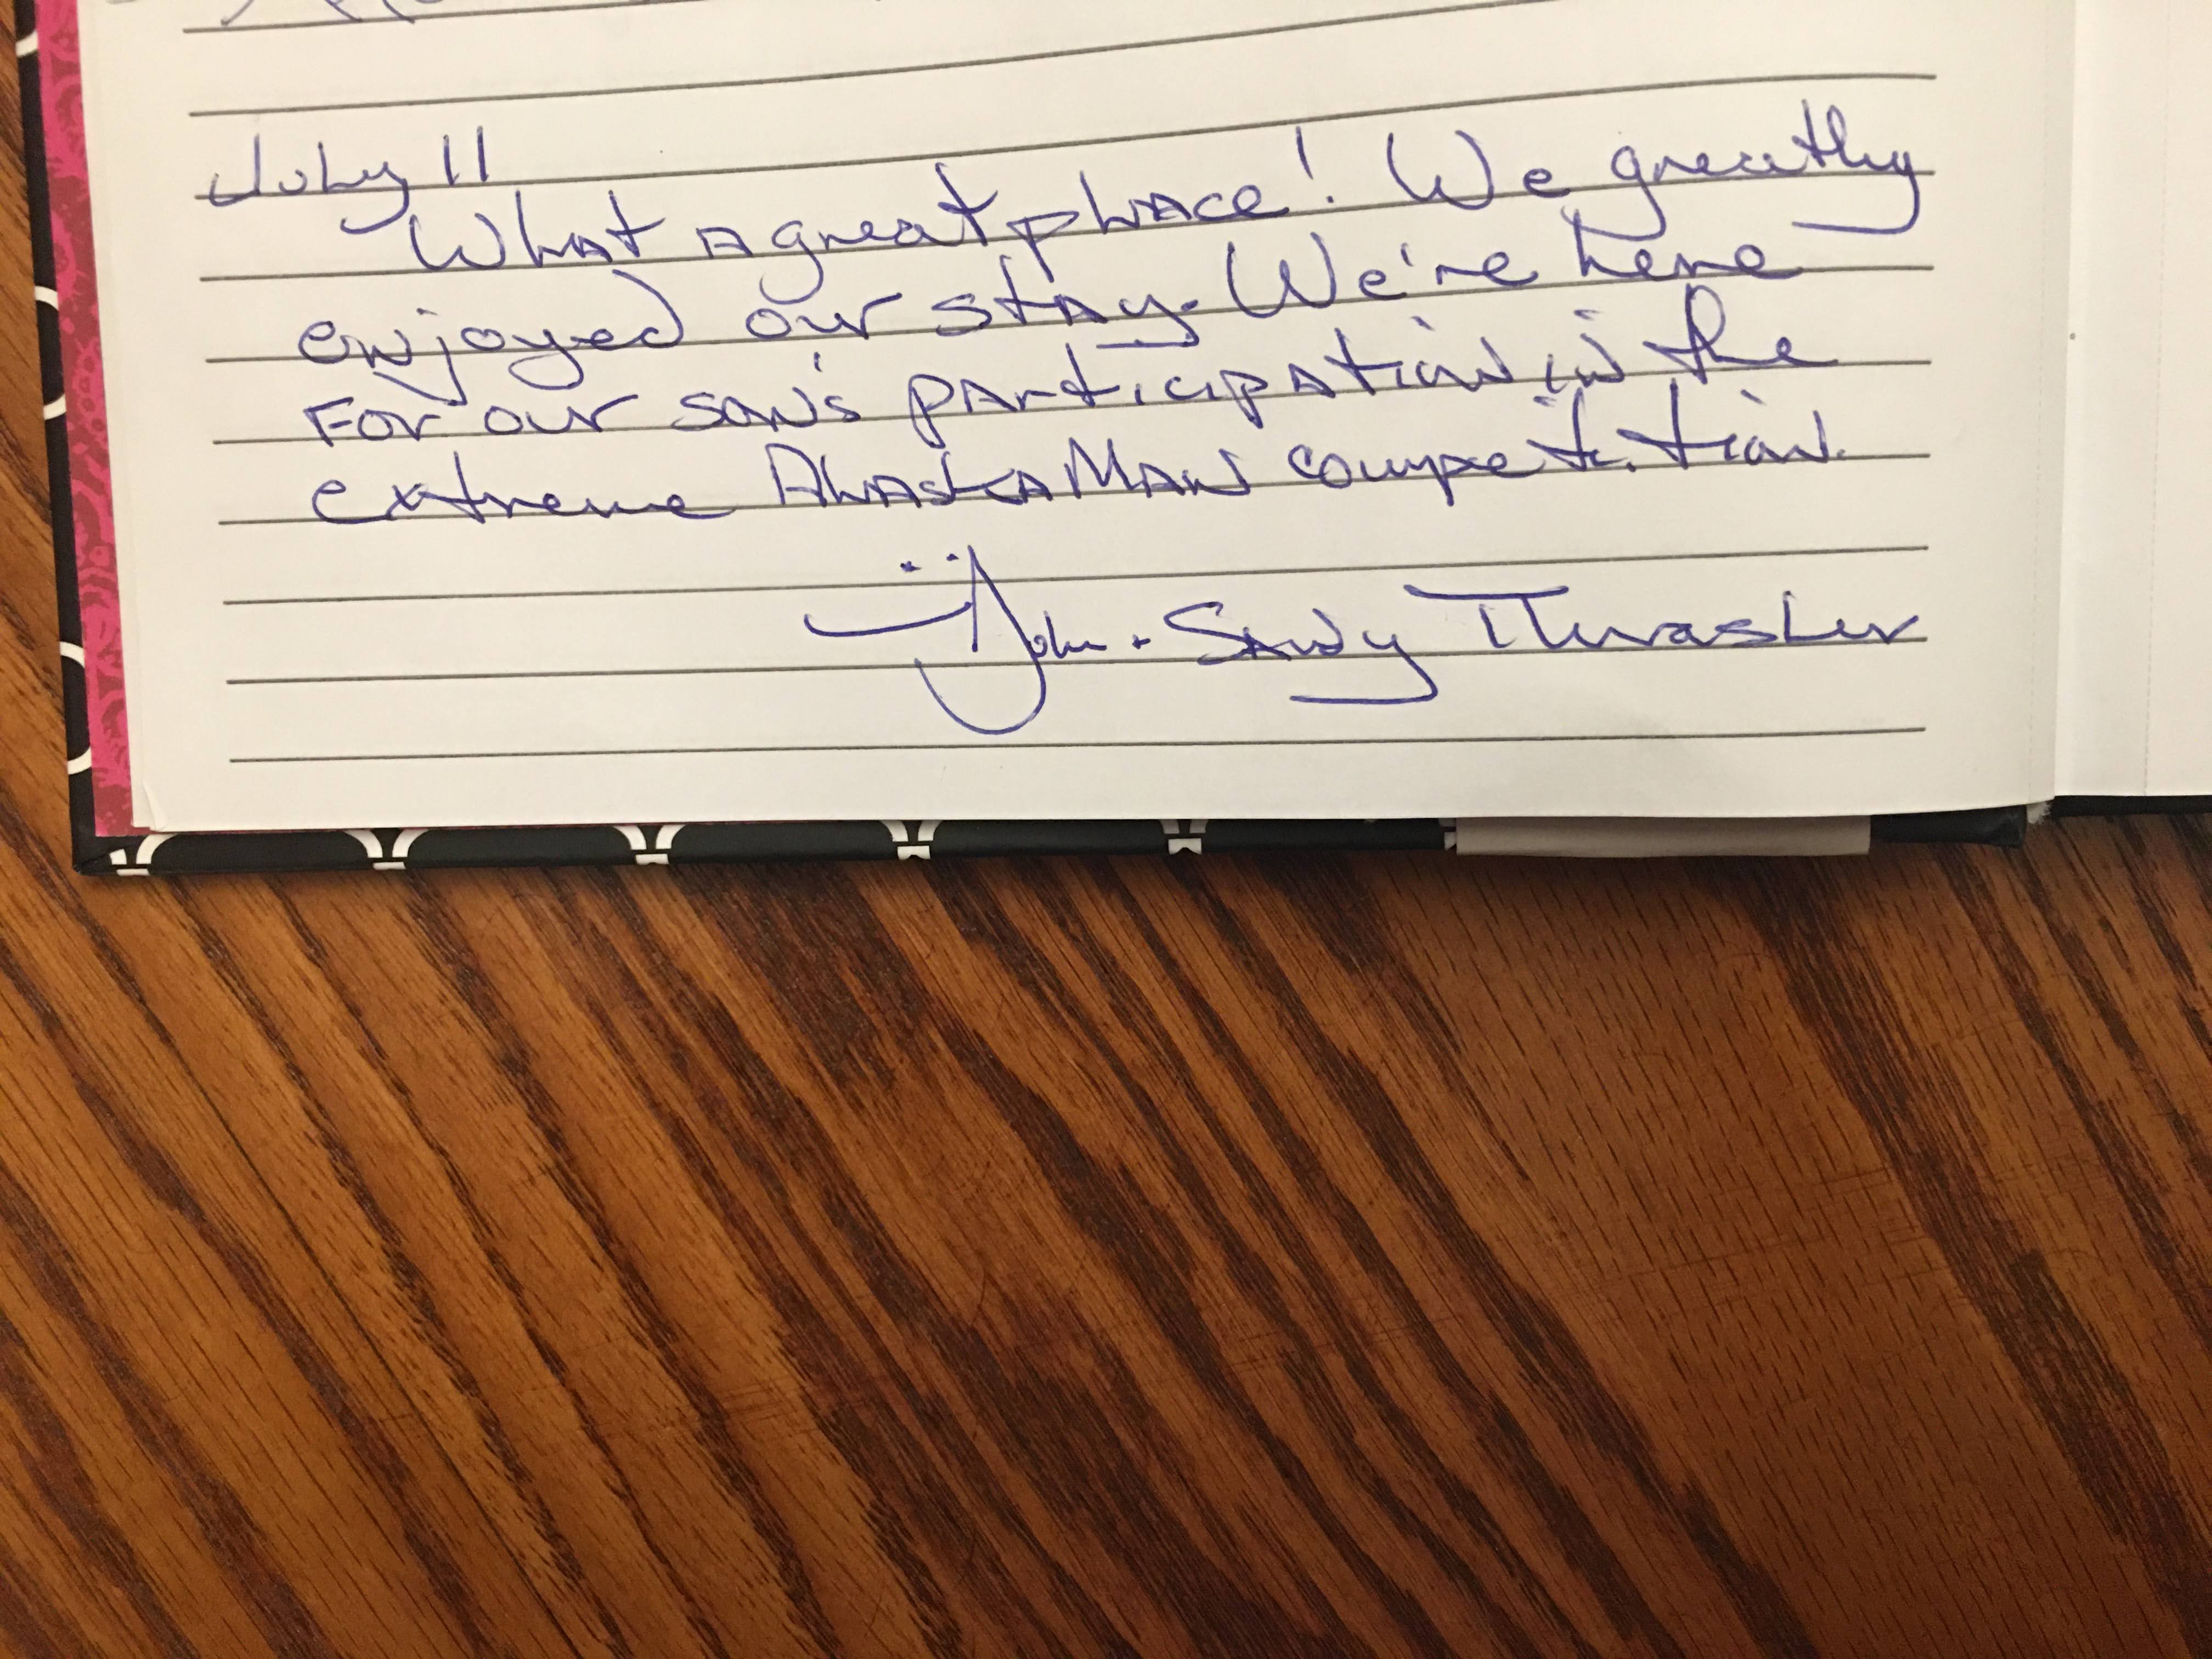 July 11
What a great place! We greatly
enjoyed our stay. We're here
For our son's participation in the
extreme AlaskaMan competition.
John + Sandy Thrasher